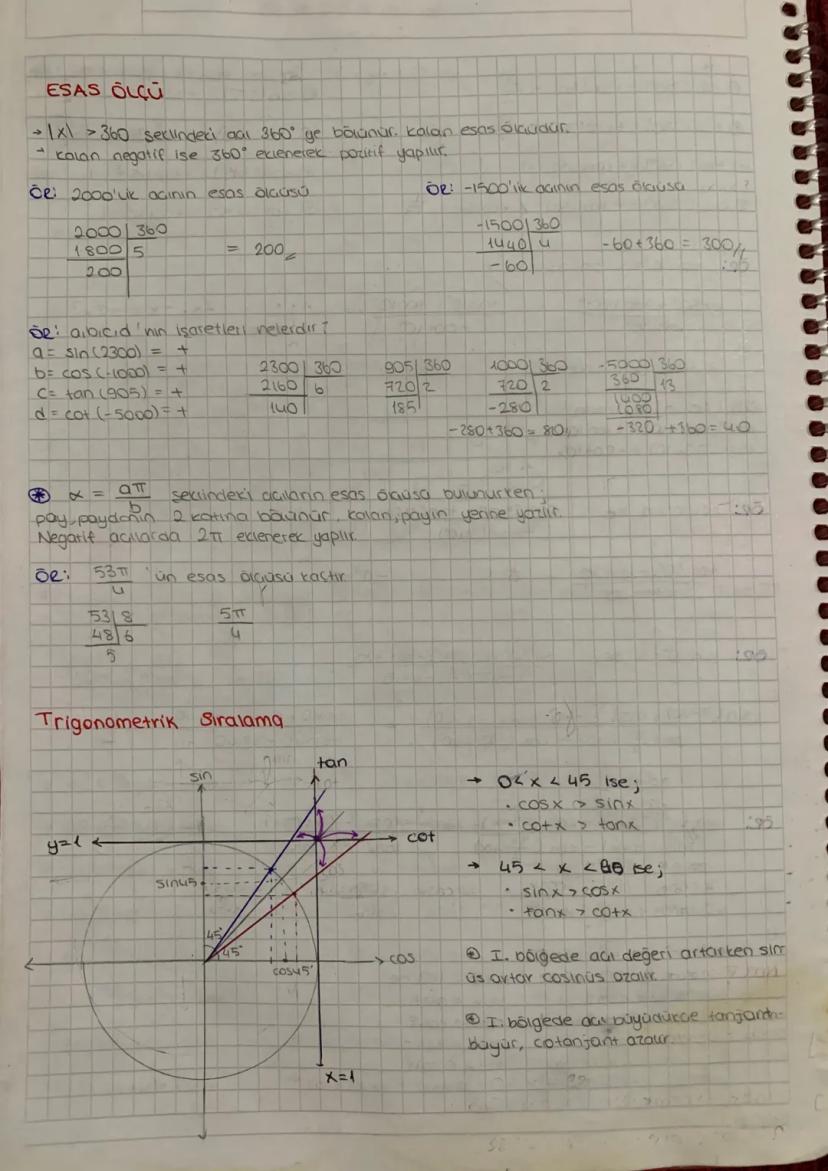 ESAS ÖLÇÜ
→ |x| > 360 şeklindeki açı 360° ye bölünür. kalan esas ölçüdür.
→ kalan negatif ise 360° eklenerek pozitif yapılır.
ÖR: 2000'lik açının esas ölçüsü
2000 | 360
1800 | 5
200
= 200
ÖR: -1500'lük açının esas ölçüsü
-1500 | 360
1440 | 4
-60
-60+360 = 300
ÖR: a,b,c,d 'nın işaretleri nelerdir?
a= sin(2300) = +
b= cos(-1000) = +
c= tan(905) = +
d= cot(-5000) = +
2300 | 360
2160 | 6
140
905 | 360
720 | 2
185
1000 | 360
720 | 2
-280
-280+360 = 80
-5000 | 360
360 | 13
1400
1080
-320 +360 = 40
α = aπ/b şeklindeki açıların esas ölçüsü bulunurken;
pay, paydanın 2 katına bölünür, kalan, payın yerine yazılır.
Negatif açılarda 2π eklenerek yapılır.
ÖR: 53π/4 'ün esas ölçüsü kaçtır
53 | 8
48 | 6
5
5π/4
Trigonometrik Sıralama
sin
tan
y=1
cot
sin45
45°
45°
cos45°
cos
x=1
→ 0<x < 45 ise;
• cosx > sinx
• cotx > tanx
→ 45 < x < 90 ise;
• sinx > cosx
• tanx > cotx
I. bölgede açı değeri artarken sin
üs artar cosinüs azalır.
I. bölgede açı büyüdükçe tanjant
büyür, cotanjant azalır.